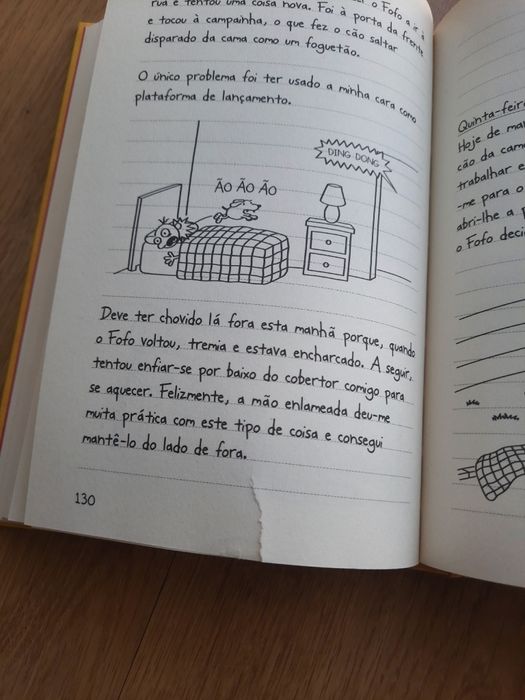 rua e tentou uma coisa nova. Foi à porta da frente
e tocou à campainha, o que fez o cão saltar
disparado da cama como um foguetão.
O único problema foi ter usado a minha cara como
plataforma de lançamento.
DING DONG
ÃO ÃO ÃO
Deve ter chovido lá fora esta manhã porque, quando
o Fofo voltou, tremia e estava encharcado. A seguir,
tentou enfiar-se por baixo do cobertor comigo para
se aquecer. Felizmente, a mão enlameada deu-me
muita prática com este tipo de coisa e consegui
mantê-lo do lado de fora.
130
Quinta-feir
Hoje de man
cão da cam
trabalhar e
-me para o
abri-lhe a
o Fofo deci